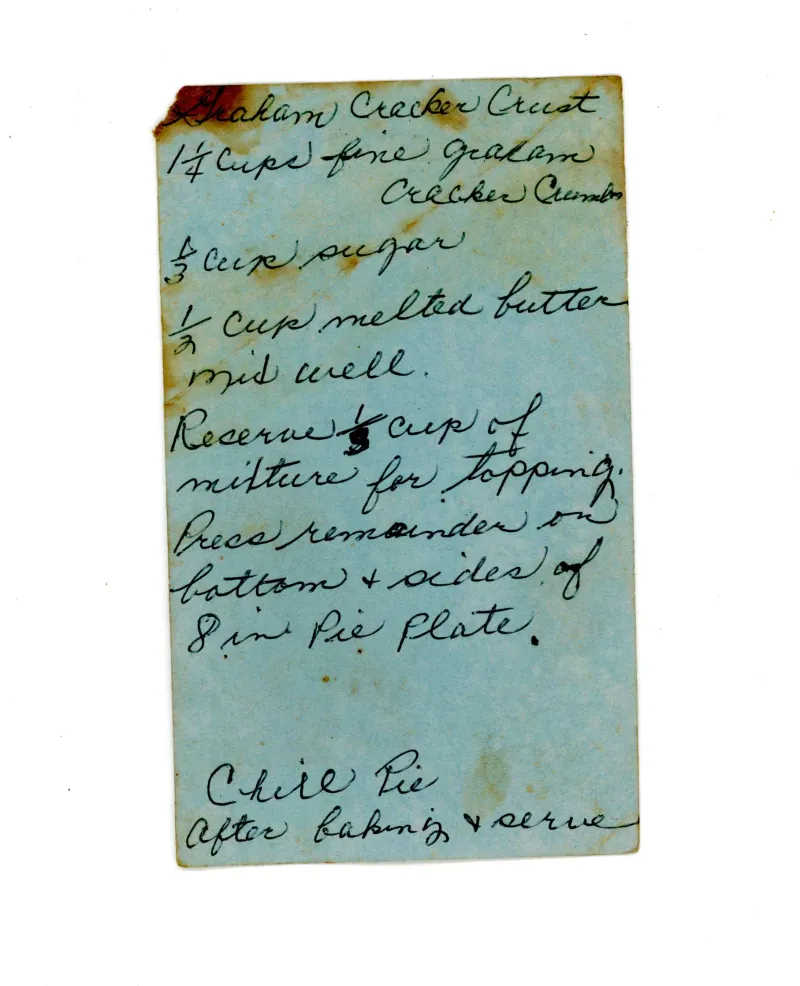 Graham Cracker Crust
1 1/4 Cups fine graham
Cracker Crumbs
1/3 Cup sugar
1/2 Cup melted butter
mix well.
Reserve 1/3 cup of
mixture for topping.
Press remainder on
bottom + sides of
8 in Pie Plate.
Chill Pie
After baking + serve